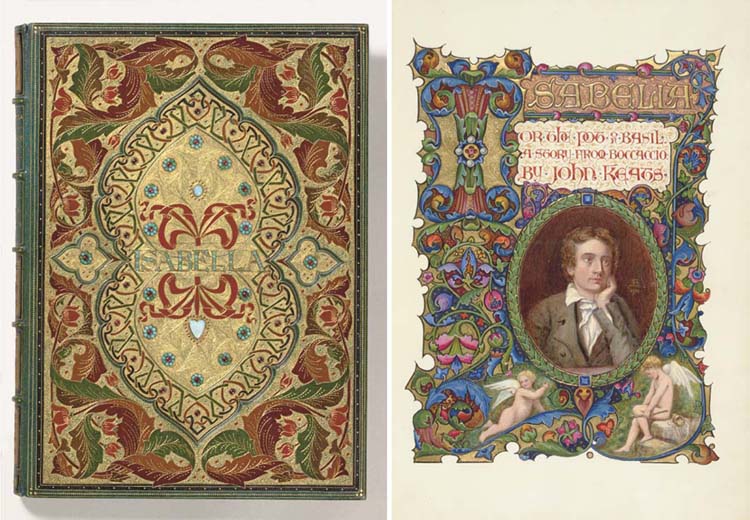 ISABELLA
ISABELLA
OR THE POT OF BASIL.
A STORY FROM BOCCACCIO.
BY JOHN KEATS.